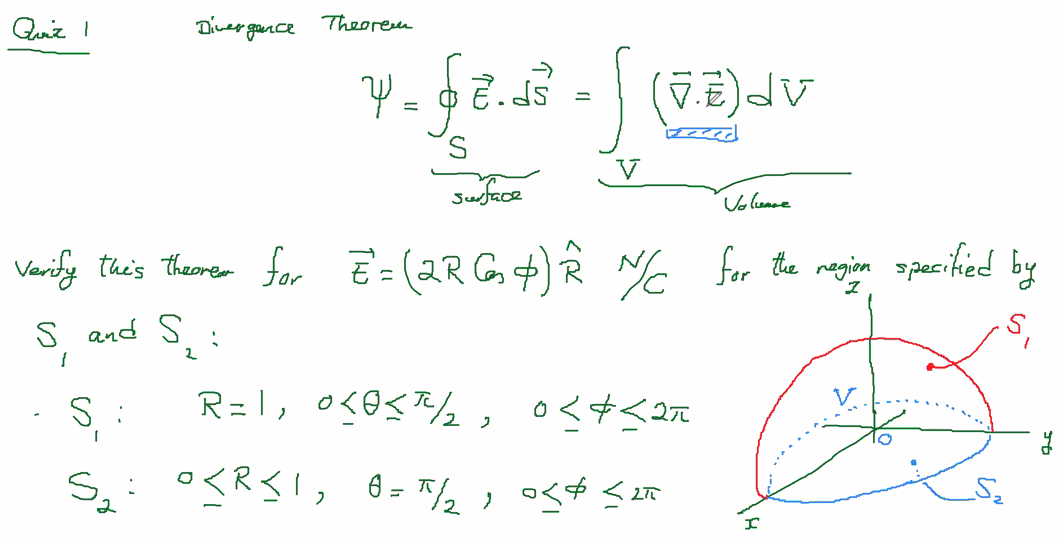 Quiz 1 Divergence Theorem
Ψ = ∮_S E⃗ · dS⃗ = ∫_V (∇⃗ · E⃗) dV
surface Volume
Verify this theorem for E⃗ = (2R Cos φ) R̂ N/C for the region specified by
S₁ and S₂ :
S₁ : R = 1, 0 ≤ θ ≤ π/2, 0 ≤ φ ≤ 2π
S₂ : 0 ≤ R ≤ 1, θ = π/2, 0 ≤ φ ≤ 2π
z
S₁
V
O
y
S₂
x